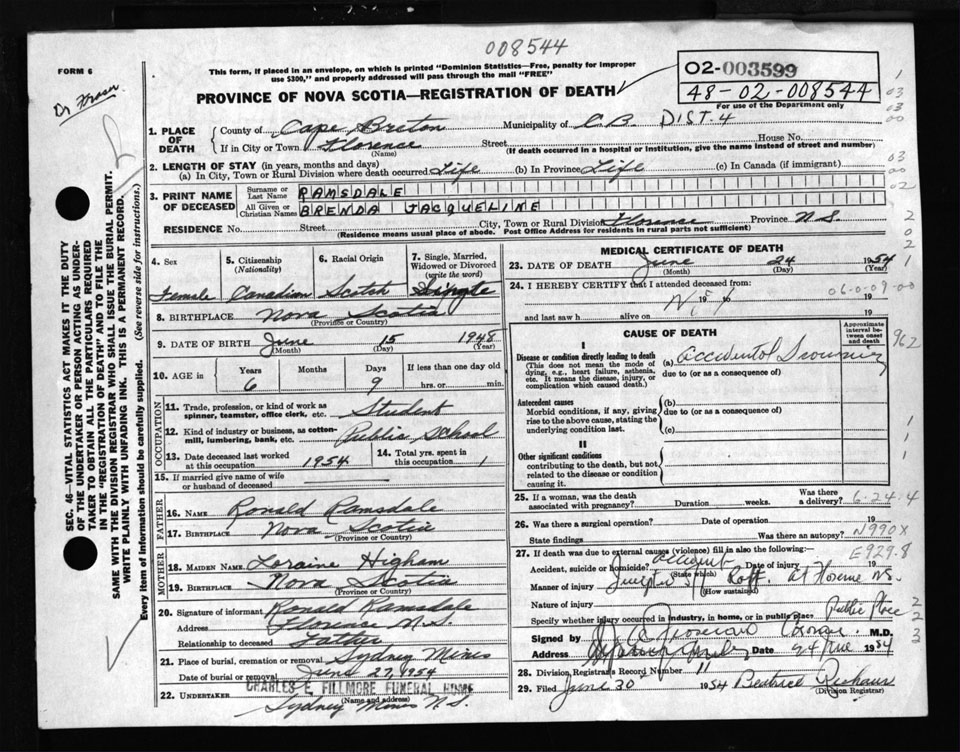 008544
FORM 6
This form, if placed in an envelope, on which is printed "Dominion Statistics—Free, penalty for improper
use $300," and properly addressed will pass through the mail "FREE"
02-003599
48-02-008544
For use of the Department only
Dr Fraser
PROVINCE OF NOVA SCOTIA—REGISTRATION OF DEATH
1. PLACE OF DEATH
County of Cape Breton Municipality of C B DIST. 4
If in City or Town Florence Street House No.
(Name) (If death occurred in a hospital or institution, give the name instead of street and number)
2. LENGTH OF STAY (in years, months and days)
(a) In City, Town or Rural Division where death occurred Life (b) In Province Life (c) In Canada (if immigrant)
3. PRINT NAME OF DECEASED
Surname or Last Name RAMSDALE
All Given or Christian Names BRENDA JACQUELINE
RESIDENCE No. Street City, Town or Rural Division Florence Province N.S.
(Residence means usual place of abode. Post Office Address for residents in rural parts not sufficient)
4. Sex
5. Citizenship (Nationality)
6. Racial Origin
7. Single, Married, Widowed or Divorced (write the word)
Female Canadian Scotch Single
8. BIRTHPLACE Nova Scotia
(Province or Country)
9. DATE OF BIRTH June 15 1948
(Month) (Day) (Year)
10. AGE in Years Months Days If less than one day old
6 9 hrs. or min.
OCCUPATION
11. Trade, profession, or kind of work as spinner, teamster, office clerk, etc. Student
12. Kind of industry or business, as cotton-mill, lumbering, bank, etc. Public School
13. Date deceased last worked at this occupation 1954
14. Total yrs. spent in this occupation 1
15. If married give name of wife or husband of deceased
FATHER
16. NAME Ronald Ramsdale
17. BIRTHPLACE Nova Scotia
(Province or Country)
MOTHER
18. MAIDEN NAME Loraine Higham
19. BIRTHPLACE Nova Scotia
(Province or Country)
20. Signature of informant Ronald Ramsdale
Address Florence N.S.
Relationship to deceased Father
21. Place of burial, cremation or removal Sydney Mines
Date of burial or removal June 27, 1954
22. UNDERTAKER CHARLES E. FILLMORE FUNERAL HOME
(Name and address)
Sydney Mines N.S.
MEDICAL CERTIFICATE OF DEATH
23. DATE OF DEATH June 24 1954
(Month) (Day) (Year)
24. I HEREBY CERTIFY that I attended deceased from:
19 19
06-0-09-00
and last saw h alive on 19
CAUSE OF DEATH
Approximate interval between onset and death
962
I
Disease or condition directly leading to death
(This does not mean the mode of dying, e.g., heart failure, asthenia, etc. It means the disease, injury, or complication which caused death.)
(a) accidental Drowning
due to (or as a consequence of)
Antecedent causes
Morbid conditions, if any, giving rise to the above cause, stating the underlying condition last.
(b)
due to (or as a consequence of)
(c)
II
Other significant conditions
contributing to the death, but not related to the disease or condition causing it.
25. If a woman, was the death associated with pregnancy? Duration weeks. Was there a delivery?
6-24-4
26. Was there a surgical operation? Date of operation 19
State findings Was there an autopsy?
N990X
E929.8
27. If death was due to external causes (violence) fill in also the following:
Accident, suicide or homicide? accident Date of injury 19
(State which)
Manner of injury off Raft at Florence N.S.
(How sustained)
Nature of injury
Specify whether injury occurred in industry, in home, or in public place Public Place
Signed by M.D.
Address Date 24 June 1954
28. Division Registrar's Record Number 11
29. Filed June 30 1954 Beatrice
(Division Registrar)
SEC. 46—VITAL STATISTICS ACT MAKES IT THE DUTY
OF THE UNDERTAKER OR PERSON ACTING AS UNDER-
TAKER TO OBTAIN ALL THE PARTICULARS REQUIRED
IN THE "REGISTRATION OF DEATH" AND TO FILE THE
SAME WITH THE DIVISION REGISTRAR WHO SHALL ISSUE THE BURIAL PERMIT.
WRITE PLAINLY WITH UNFADING INK. THIS IS A PERMANENT RECORD.
Every item of information should be carefully supplied. (See reverse side for instructions.)